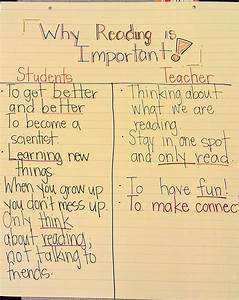 Why Reading is
Important!
Students
• To get better
and better
To become a
scientist.
• Learning new
things.
When you grow up
you don't mess up.
Only think
about reading,
not talking to
friends.
Teacher
• Thinking about
what we are
reading
Stay in one spot
and only read.
• To have fun!
• To make connect